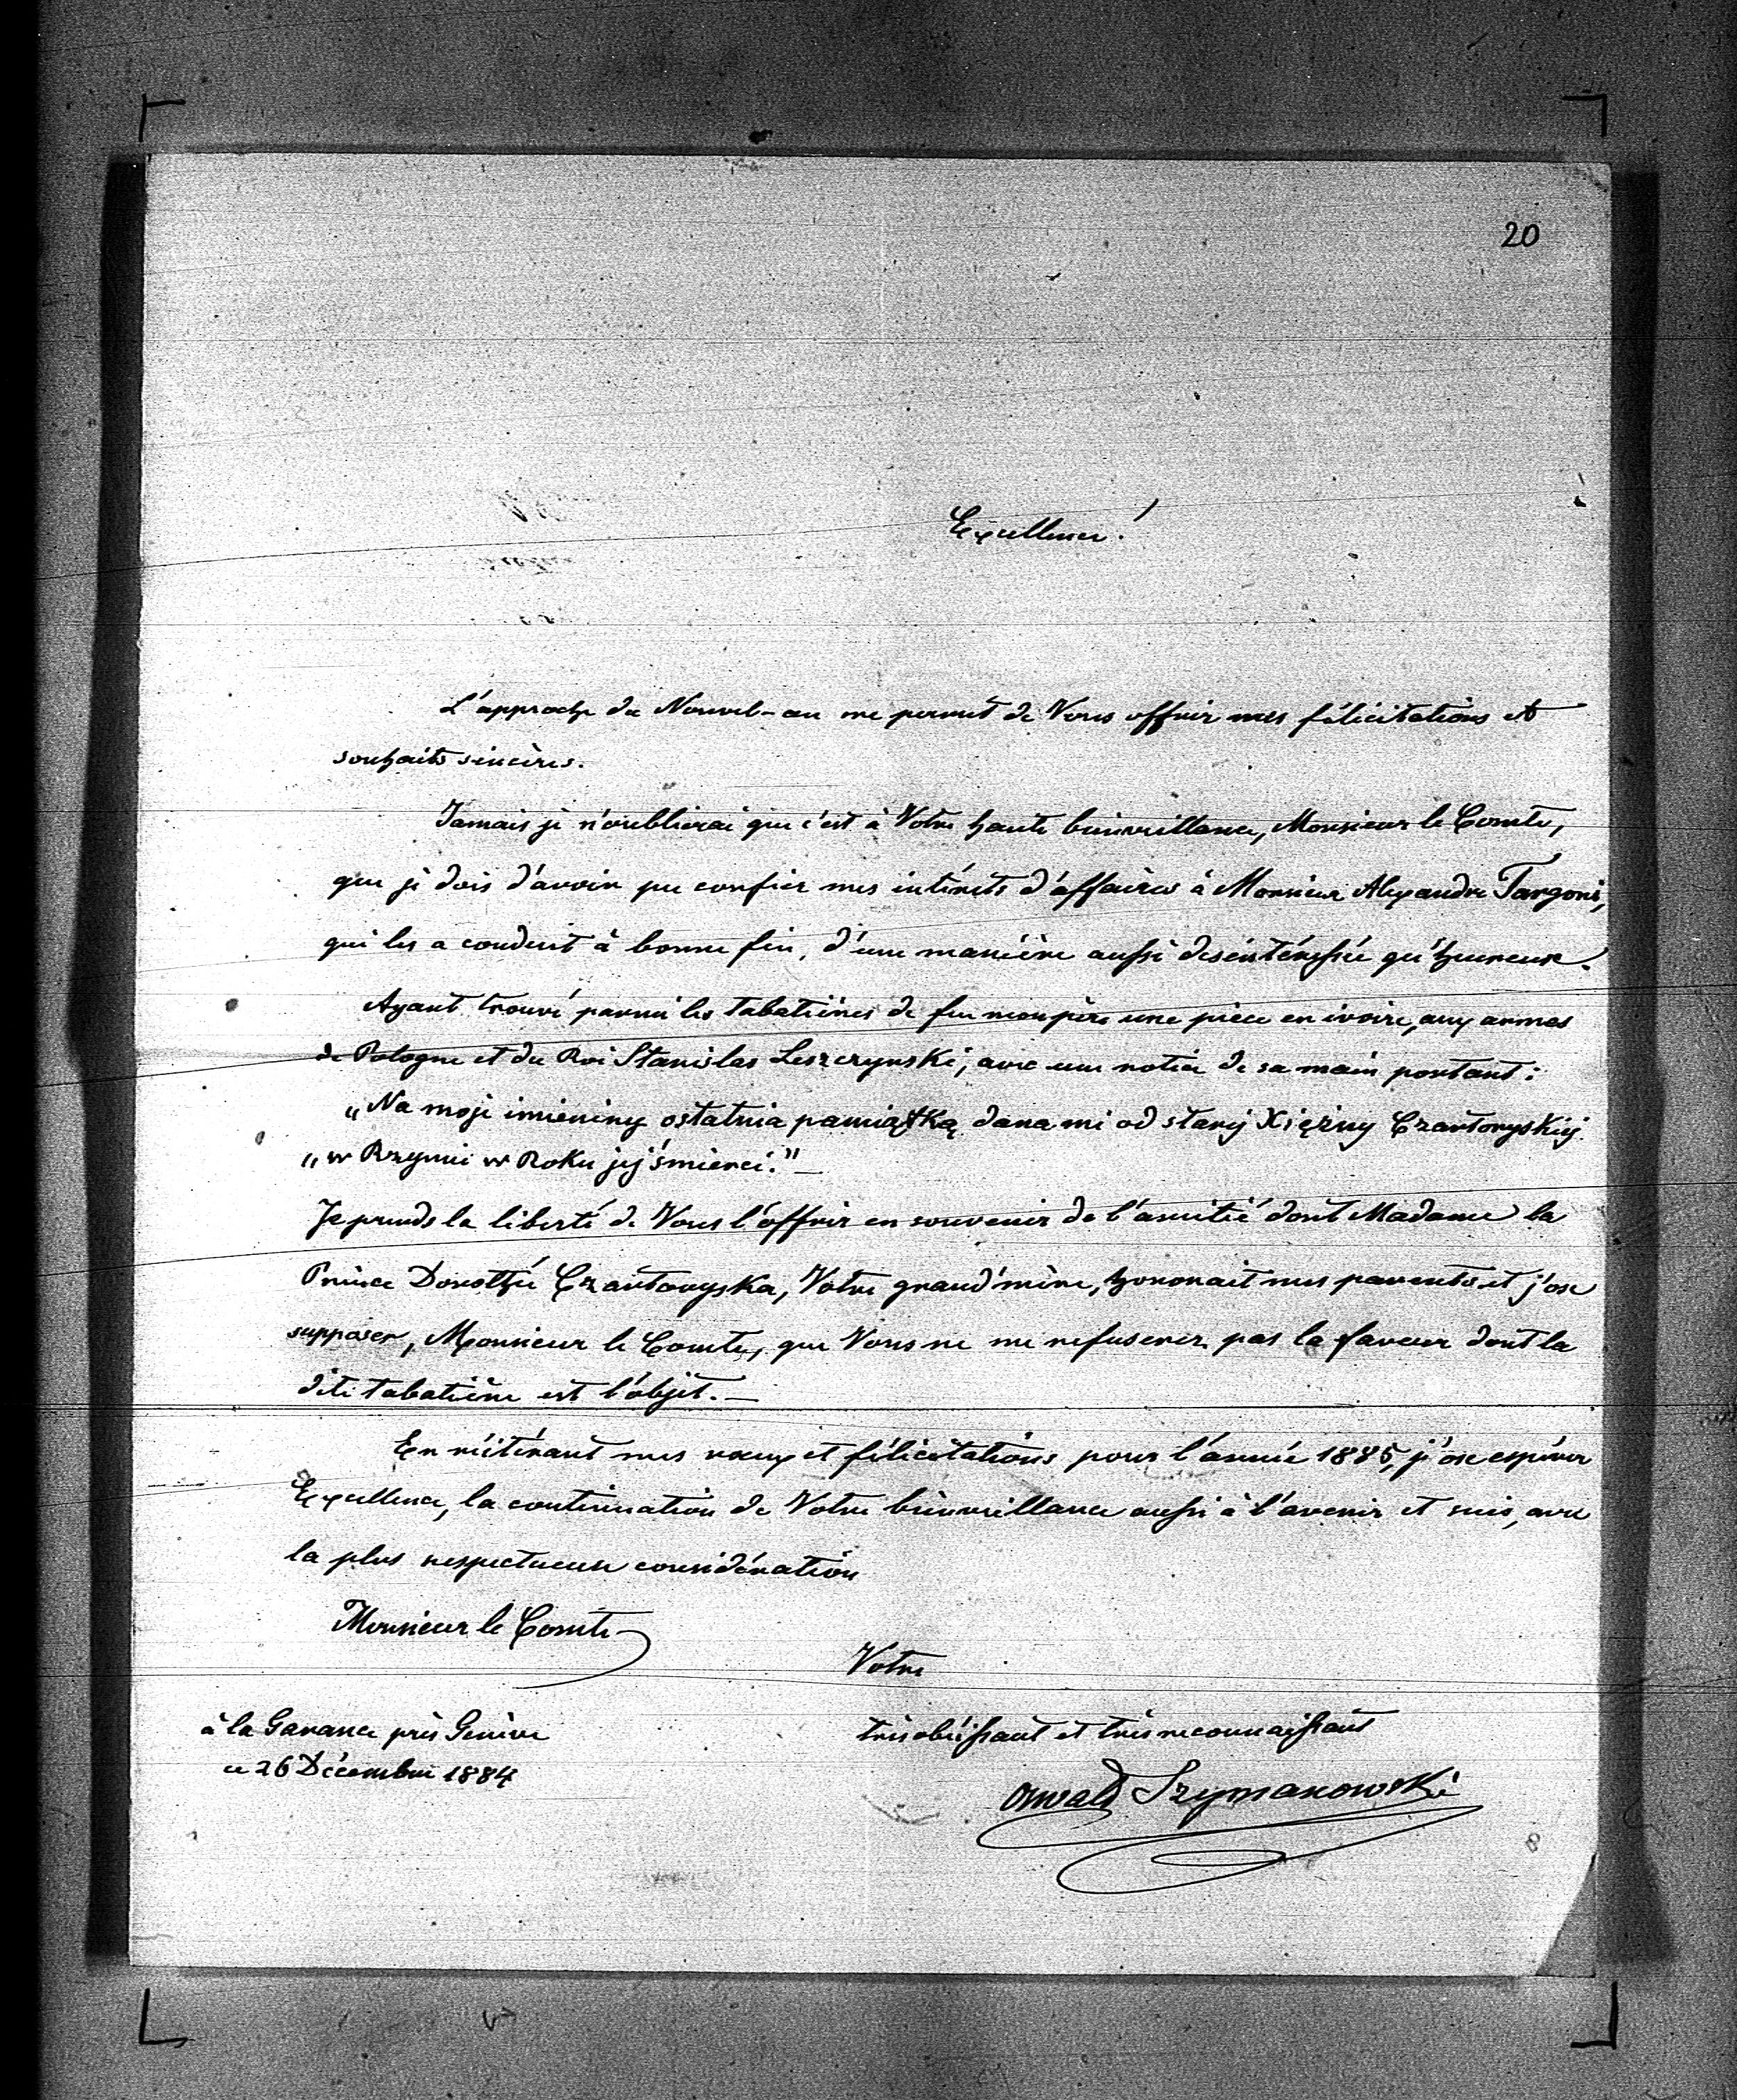 20
Excellence!
L'approche du Nouvel-an me permet de Vous offrir mes félicitations et
souhaits sincères.
Jamais je n'oublierai que c'est à Votre haute bienveillance, Monsieur le Comte,
que je dois d'avoir pu confier mes intérêts d'affaires à Monsieur Alexandre Targoni,
qui les a conduit à bonne fin, d'une manière aussi desintéressée qu'heureuse.
Ayant trouvé parmi les tabatières de feu mon père une pièce en ivoire, aux armes
de Pologne et du Roi Stanislas Leszczynski, avec une notice de sa main portant:
„Na moje imieniny ostatnia pamiątką dana mi od starej Xiężny Czartoryskiej
„w Rzymie w Roku jej śmierci."—
Je prends la liberté de Vous l'offrir en souvenir de l'amitié dont Madame la
Prince Dorothée Czartoryska, Votre grand'mère, honorait mes parents et j'ose
supposer, Monsieur le Comte, que Vous ne me refuserez pas la faveur dont la
dite tabatière est l'objet.—
En réitérant mes voeux et félicitations pour l'année 1885, j'ose espérer
Excellence, la continuation de Votre bienveillance aussi à l'avenir et suis, avec
la plus respectueuse considération
Monsieur le Comte
Votre
à la Garance près Genève
très obéissant et très reconnaissant
ce 26 Décembre 1884
Oswald Szymanowski
8